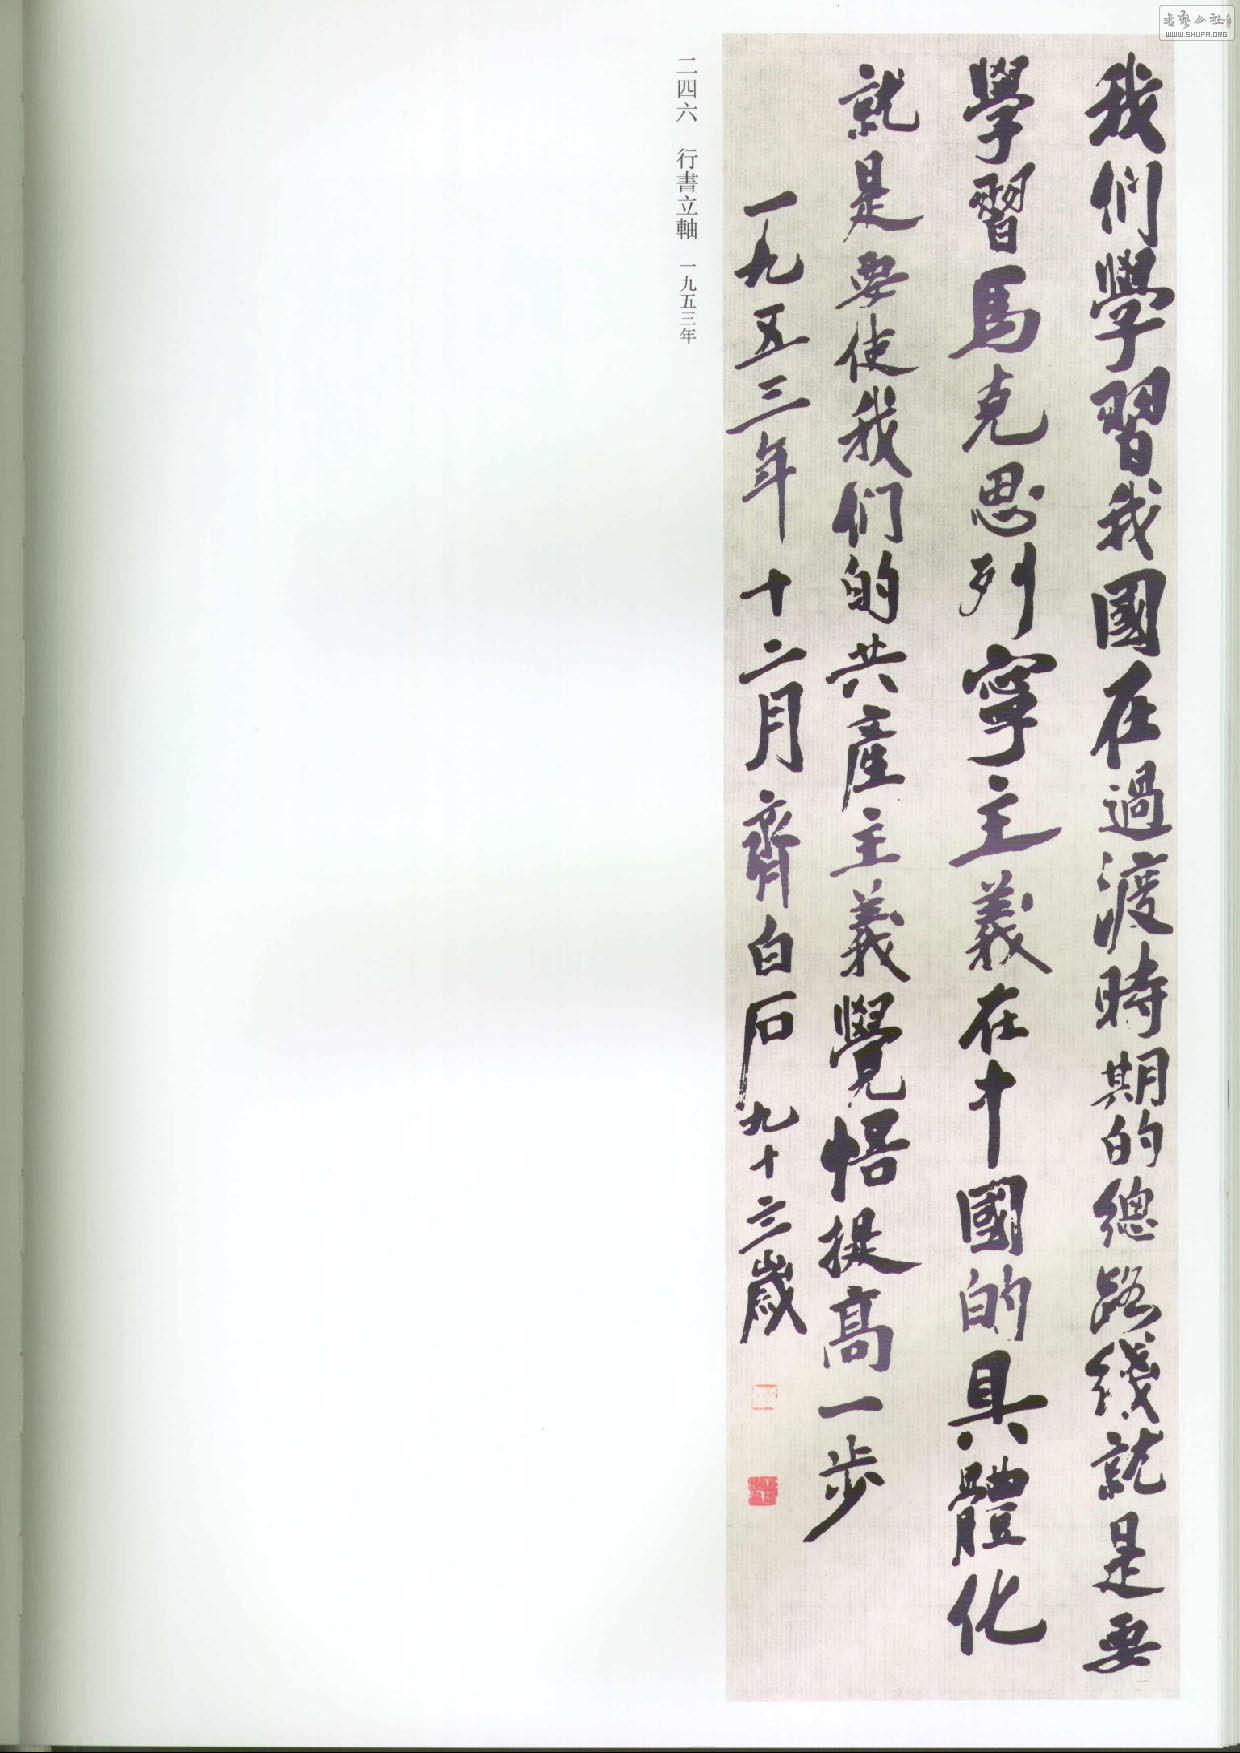 我們學習我國在過渡時期的總路綫就是要
學習馬克思列寧主義在中國的具體化
就是要使我们的共產主義覺悟提高一步
一九五三年十二月齊白石九十三歲
二四六 行書立軸 一九五三年
書藝公社
WWW.SHUFA.ORG